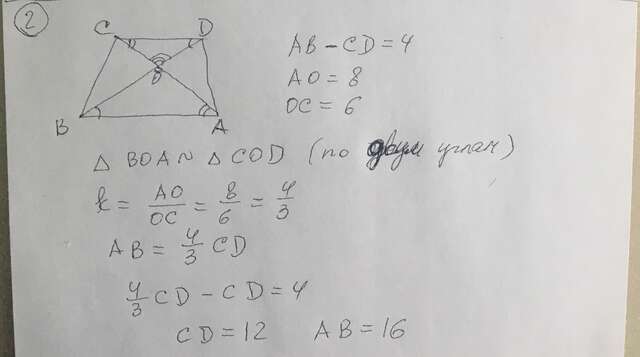 2
C D
O
B A
AB - CD = 4
AO = 8
OC = 6
△ BOA ~ △ COD (по двум углам)
k = AO/OC = 8/6 = 4/3
AB = 4/3 CD
4/3 CD - CD = 4
CD = 12 AB = 16